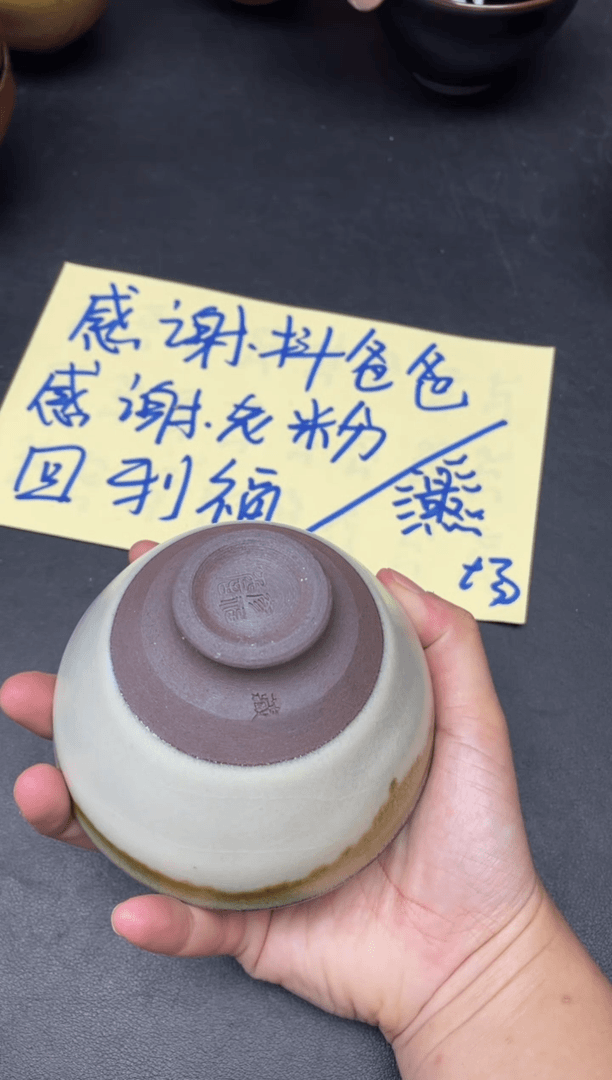 感谢抖爸爸
感谢老粉
回利福
场